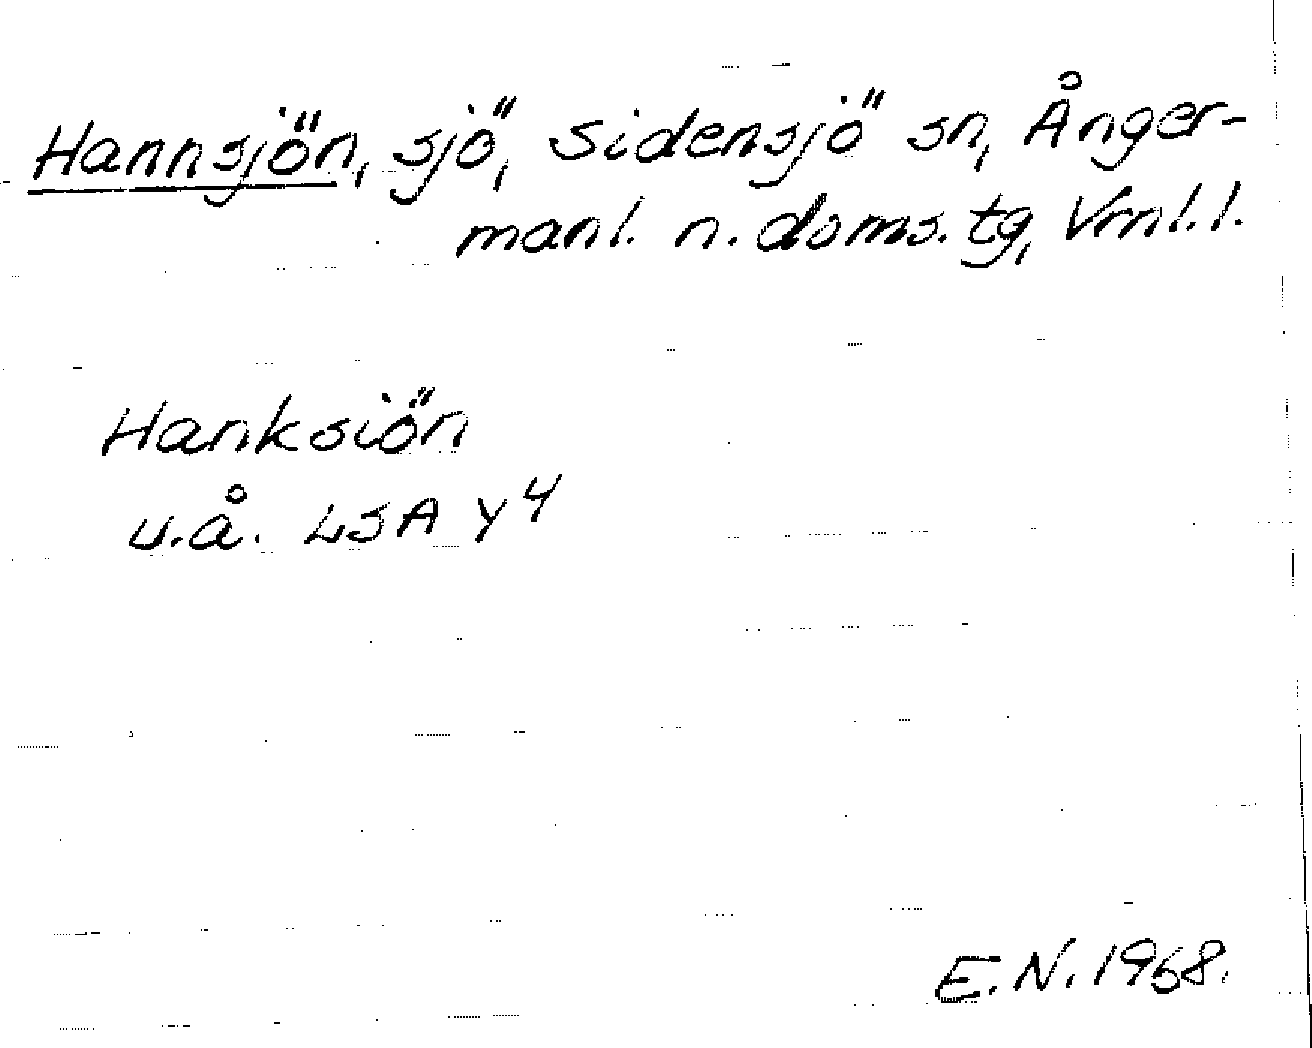 Hannsjön, sjö, Sidensjö sn, Ånger-
manl. n. doms. tg, Vrnl. l.
Hanksiön
u.å. LSA Y 4
E.N. 1968.